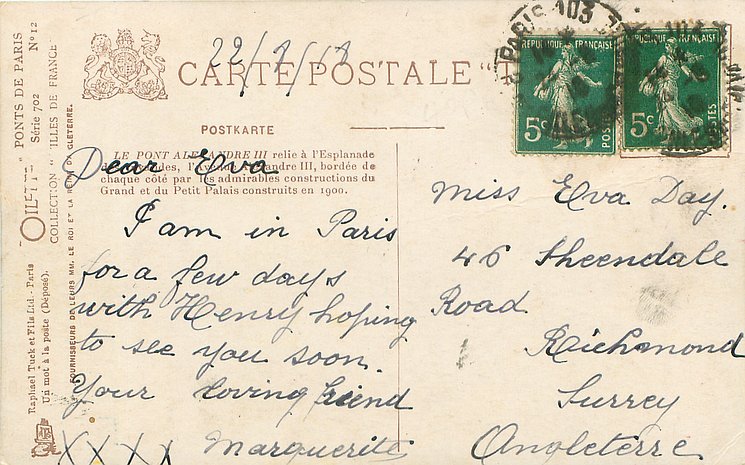 22/7/17
CARTE POSTALE
POSTKARTE
LE PONT ALEXANDRE III relie à l'Esplanade
des Invalides, l'Avenue Alexandre III, bordée de
chaque côté par les admirables constructions du
Grand et du Petit Palais construits en 1900.
"OILETTE" PONTS DE PARIS
Série 702 Nº 12
COLLECTION "VILLES DE FRANCE"
FOURNISSEURS DE LEURS MM. LE ROI ET LA REINE D'ANGLETERRE.
Raphael Tuck et Fils Ltd - Paris
Un mot à la poste (Déposé).
Dear Eva
I am in Paris
for a few days
with Henry hoping
to see you soon.
Your loving friend
Marguerite
XXXX
PARIS 103
REPUBLIQUE FRANÇAISE
5c POSTES
REPUBLIQUE FRANÇAISE
5c POSTES
Miss Eva Day.
46 Sheendale
Road
Richmond
Surrey
Angleterre